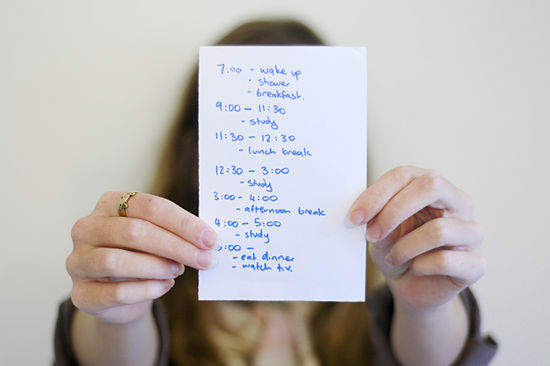 7.00 - wake up
- shower
- breakfast.
9:00 - 11:30
- study
11:30 - 12:30
- lunch break
12:30 - 3:00
- study
3:00 - 4:00
- afternoon break
4:00 - 5:00
- study
:00 -
- eat dinner
- watch t.v.